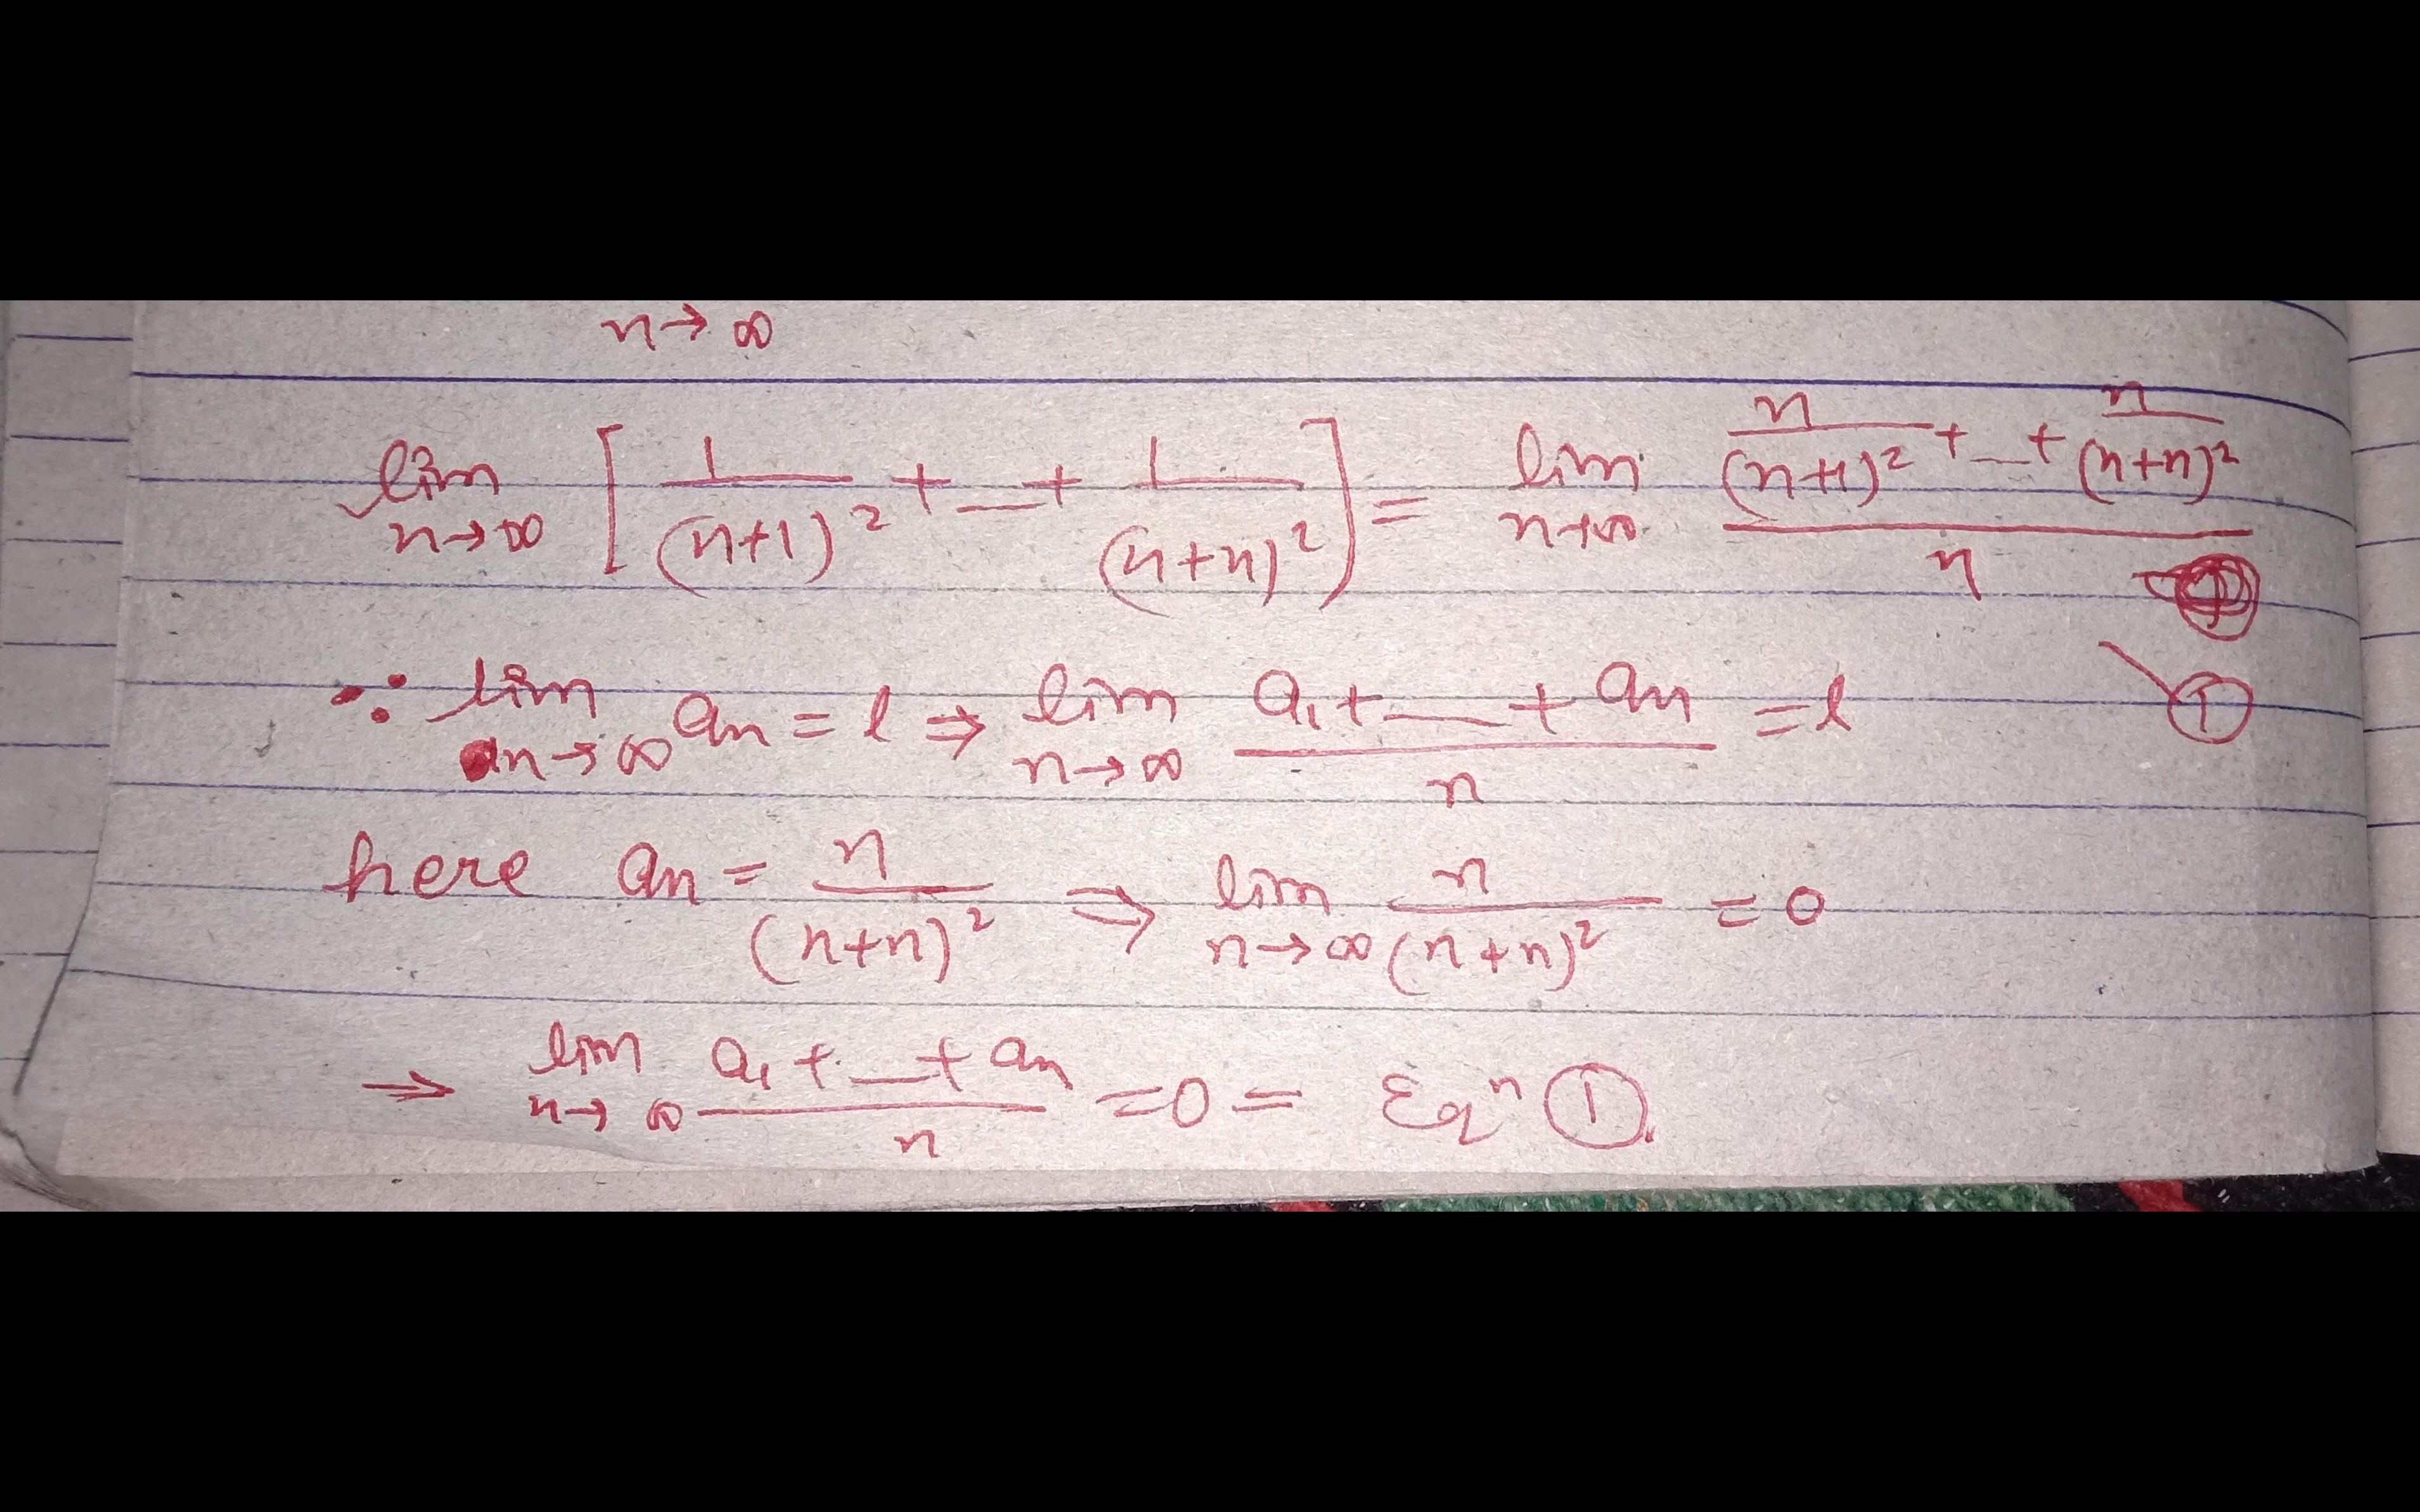 n→∞
lim n→∞ [ 1/(n+1)² + — + 1/(n+n)² ] = lim n→∞ (n/(n+1)² + — + n/(n+n)²)/n
①
∵ lim n→∞ an = l ⇒ lim n→∞ (a₁ + — + an)/n = l
here an = n/(n+n)² ⇒ lim n→∞ n/(n+n)² = 0
⇒ lim n→∞ (a₁ + — + an)/n = 0 = Eqⁿ ①.